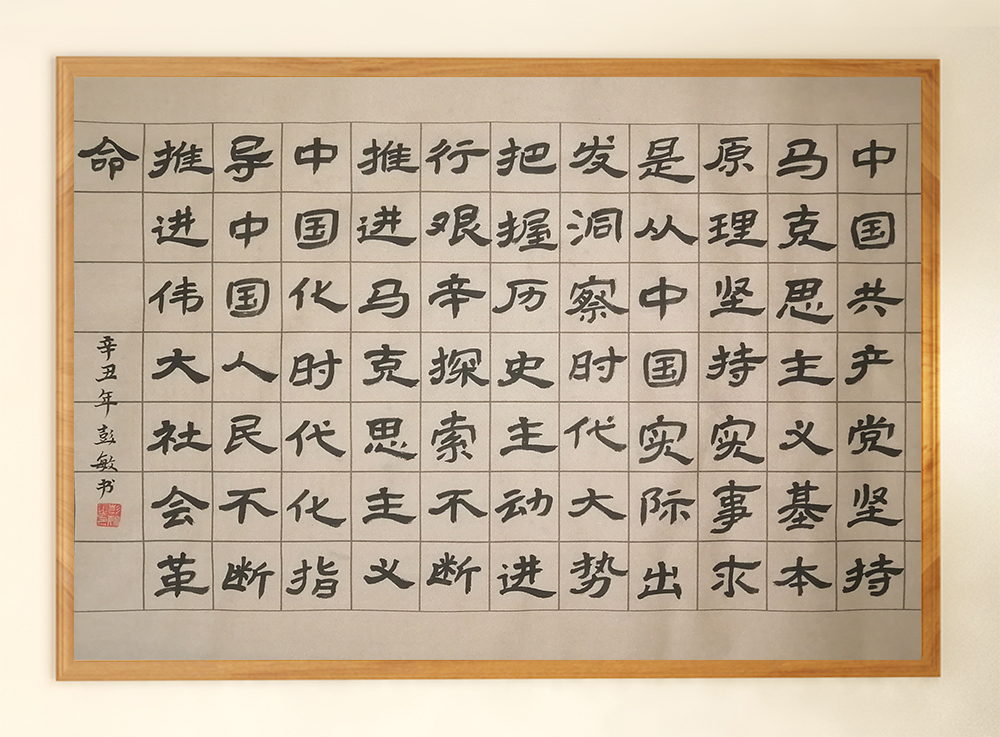 中国共产党坚持
马克思主义基本
原理坚持实事求
是从中国实际出
发洞察时代大势
把握历史主动进
行艰辛探索不断
推进马克思主义
中国化时代化指
导中国人民不断
推进伟大社会革
命
辛丑年彭敏书